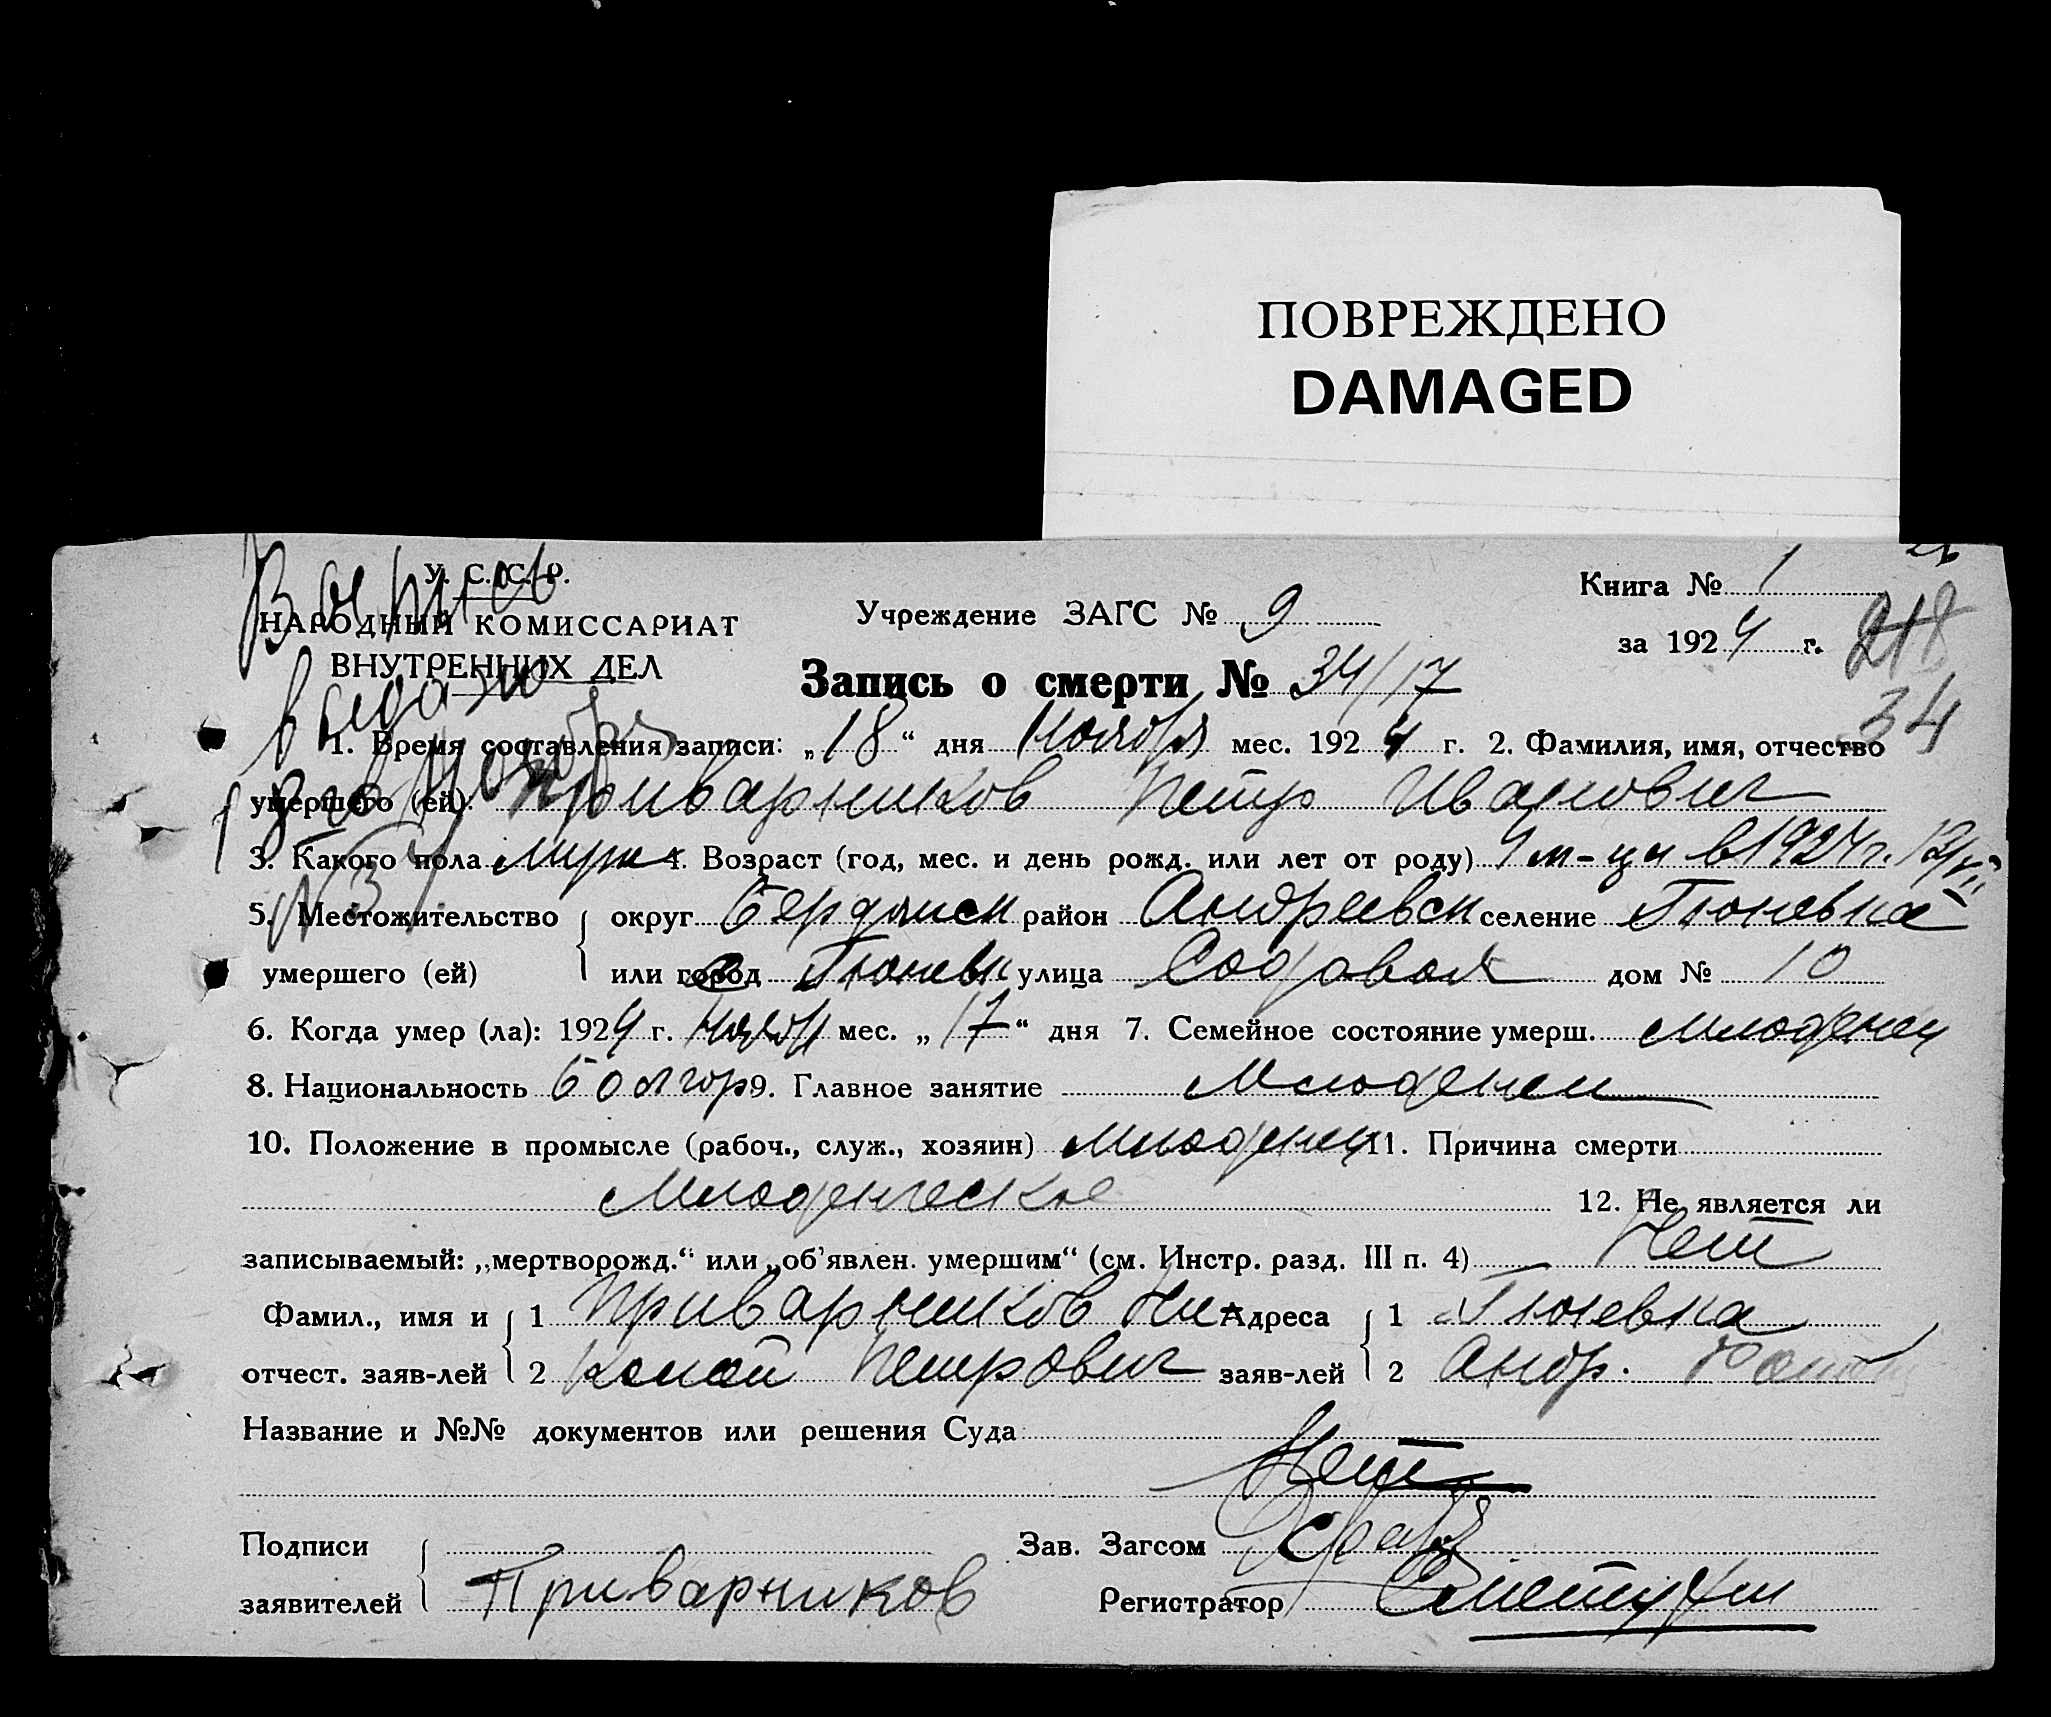 ПОВРЕЖДЕНО
DAMAGED
У. С. С. Р.
НАРОДНЫЙ КОМИССАРИАТ
ВНУТРЕННИХ ДЕЛ
Выпись
выдана
18го Ноября
№ 3
Учреждение ЗАГС № 9
Книга № 1
за 1924 г.
218
34
Запись о смерти № 34/17
1. Время составления записи: „18“ дня Ноября мес. 1924 г. 2. Фамилия, имя, отчество
умершего (ей): Приварников Петр Иванович
3. Какого пола муж 4. Возраст (год, мес. и день рожд. или лет от роду) 4 м-ца в 1924 г. 12/VII
5. Местожительство округ Бердянск район Андреевск селение Гюневка
умершего (ей) или город Гюневк улица Садовая дом № 10
6. Когда умер (ла): 1924 г. Ноябр мес. „17“ дня 7. Семейное состояние умерш. Младенец
8. Национальность болгар 9. Главное занятие Младенец
10. Положение в промысле (рабоч., служ., хозяин) Младенец 11. Причина смерти
Младенческое 12. Не является ли
записываемый: „мертворожд.“ или „об'явлен. умершим“ (см. Инстр. разд. III п. 4) Нет
Фамил., имя и 1 Приварников Ни Адреса 1 Гюневка
отчест. заяв-лей 2 колай Петрович заяв-лей 2 Андр.
Название и №№ документов или решения Суда
Нет
Подписи Зав. Загсом
заявителей Приварников Регистратор